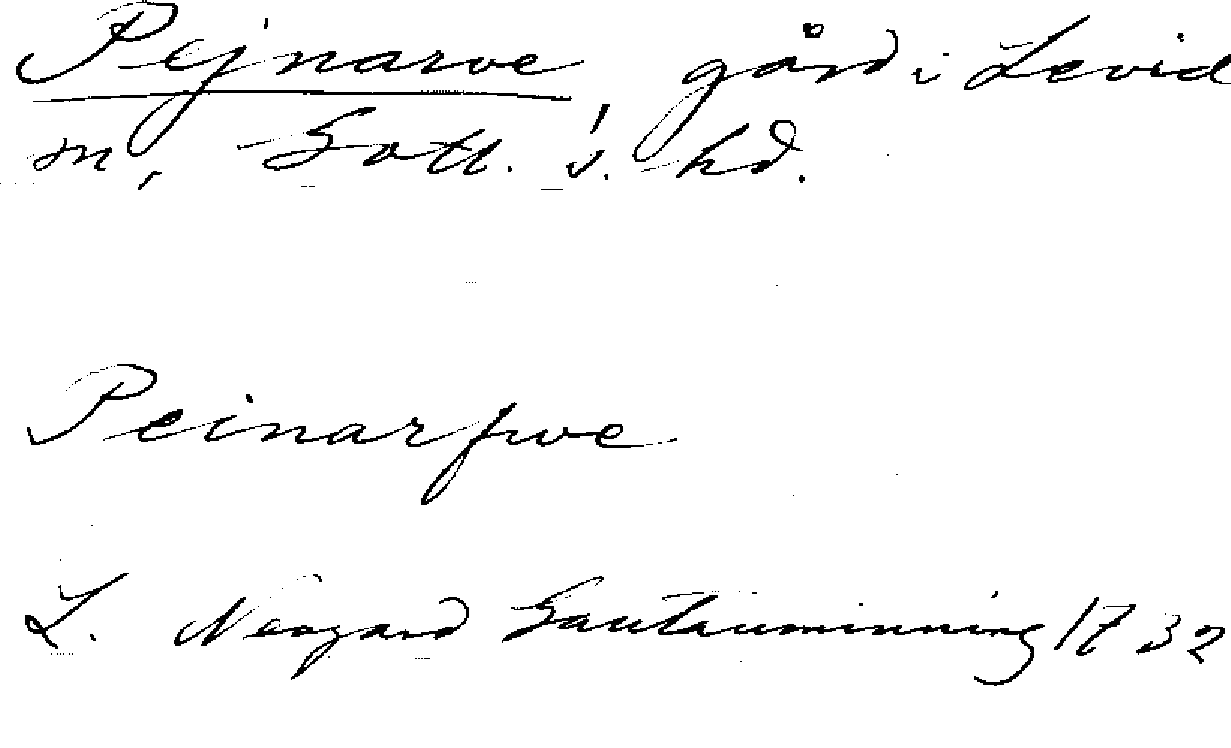 Pejnarve, gård i Levide
sn, Gotl. s. hd.
Peinarfwe
L. Neogard Gautauminning 1732